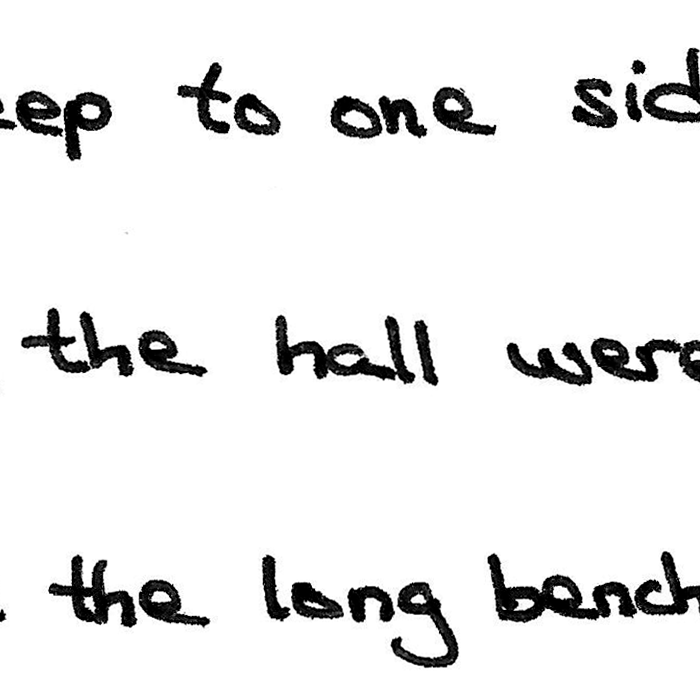 eep to one sid
the hall were
the long bench